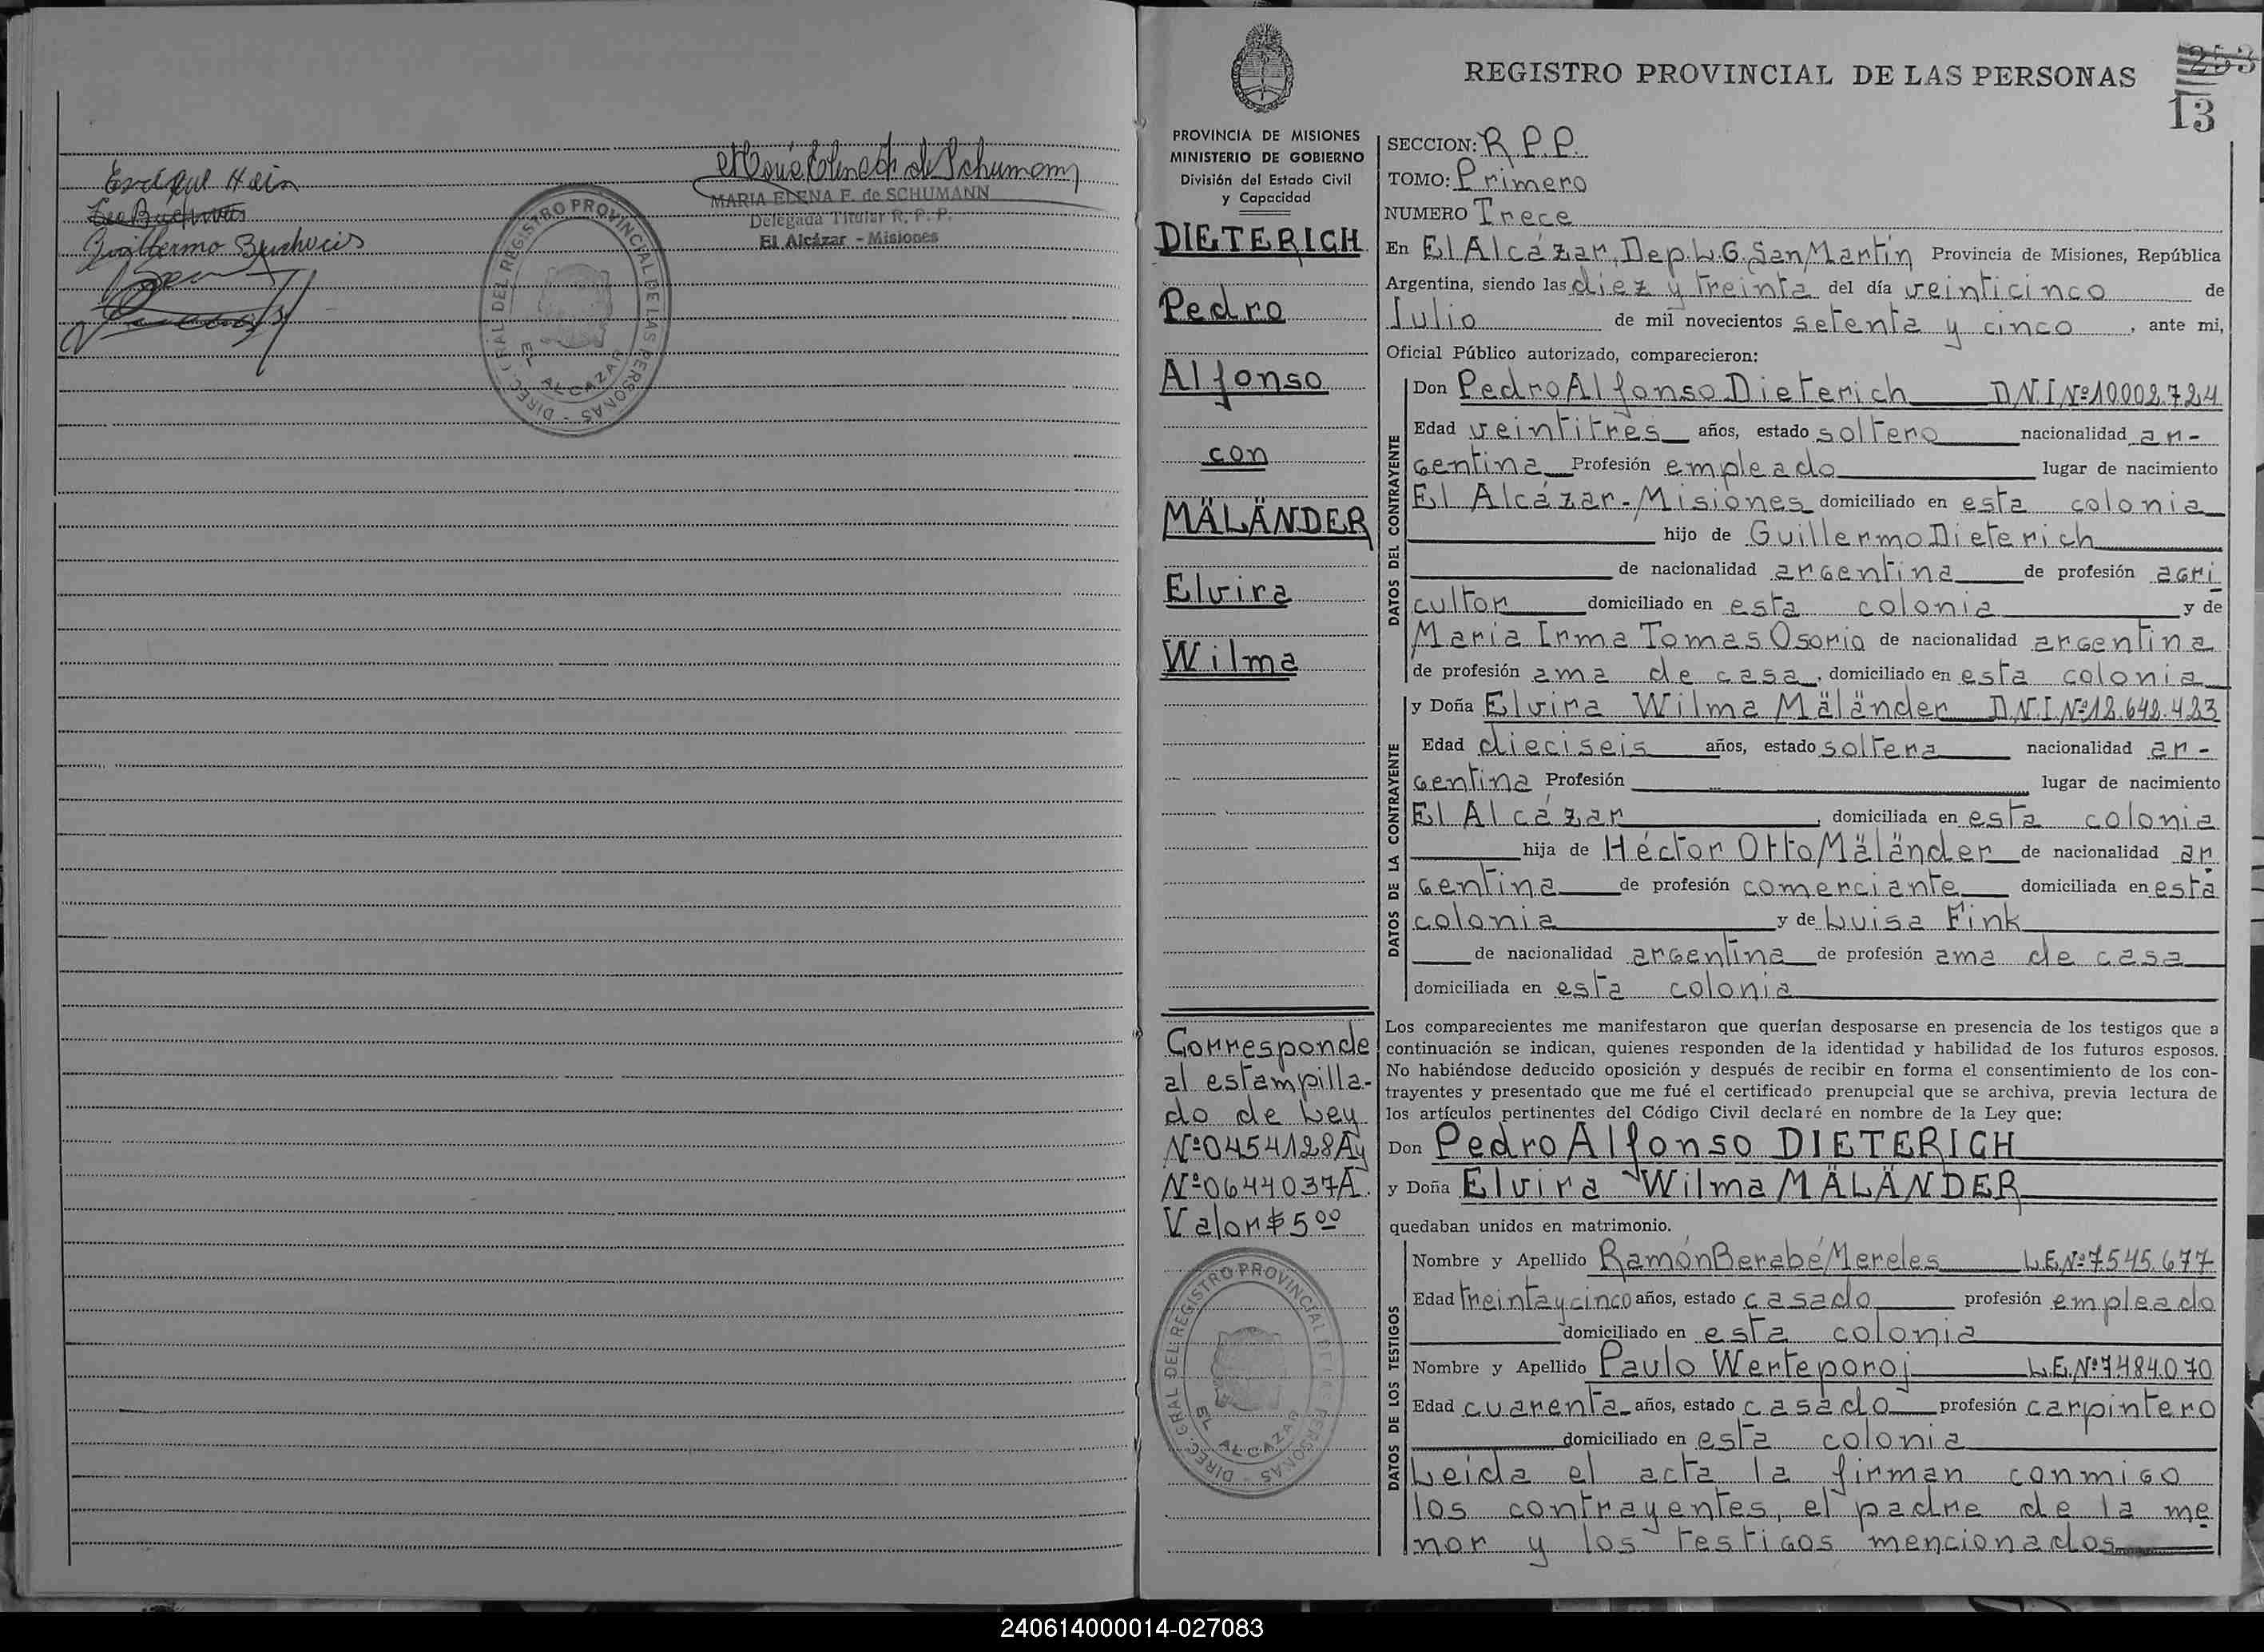 Enrique Hein
Guillermo Buchweis
MARIA ELENA F. de SCHUMANN
Delegada Titular R. P. P.
El Alcázar - Misiones
DIREC. GRAL. DEL REGISTRO PROVINCIAL DE LAS PERSONAS
EL ALCAZAR
REGISTRO PROVINCIAL DE LAS PERSONAS
253
13
PROVINCIA DE MISIONES
MINISTERIO DE GOBIERNO
División del Estado Civil
y Capacidad
DIETERICH
Pedro
Alfonso
con
MÄLÄNDER
Elvira
Wilma
Corresponde
al estampilla-
do de Ley
Nº0454128A y
Nº0644037A.
Valor $ 5 00
DIREC. GRAL. DEL REGISTRO PROVINCIAL DE LAS PERSONAS
EL ALCAZAR
SECCION: R.P.P.
TOMO: Primero
NUMERO Trece
En El Alcázar, Dep. L.G. San Martín Provincia de Misiones, República
Argentina, siendo las diez y treinta del día veinticinco de
Julio de mil novecientos setenta y cinco, ante mi,
Oficial Público autorizado, comparecieron:
DATOS DEL CONTRAYENTE
Don Pedro Alfonso Dieterich D.N.I Nº10002.724
Edad veintitrés años, estado soltero nacionalidad ar-
gentina Profesión empleado lugar de nacimiento
El Alcázar - Misiones domiciliado en esta colonia
hijo de Guillermo Dieterich
de nacionalidad argentina de profesión agri
cultor domiciliado en esta colonia y de
Maria Irma Tomas Osorio de nacionalidad argentina
de profesión ama de casa, domiciliado en esta colonia
DATOS DE LA CONTRAYENTE
y Doña Elvira Wilma Mäländer D.N.I.Nº12.642.423
Edad dieciseis años, estado soltera nacionalidad ar-
gentina Profesión lugar de nacimiento
El Alcázar, domiciliada en esta colonia
hija de Héctor Otto Mäländer de nacionalidad ar
gentina de profesión comerciante domiciliada en esta
colonia y de Luisa Fink
de nacionalidad argentina de profesión ama de casa
domiciliada en esta colonia
Los comparecientes me manifestaron que querían desposarse en presencia de los testigos que a
continuación se indican, quienes responden de la identidad y habilidad de los futuros esposos.
No habiéndose deducido oposición y después de recibir en forma el consentimiento de los con-
trayentes y presentado que me fué el certificado prenupcial que se archiva, previa lectura de
los artículos pertinentes del Código Civil declaré en nombre de la Ley que:
Don Pedro Alfonso DIETERICH
y Doña Elvira Wilma MÄLÄNDER
quedaban unidos en matrimonio.
DATOS DE LOS TESTIGOS
Nombre y Apellido Ramón Berabé Mereles L.E.Nº7.545.677
Edad treinta y cinco años, estado casado profesión empleado
domiciliado en esta colonia
Nombre y Apellido Paulo Werteporoj L.E.Nº7.484.070
Edad cuarenta años, estado casado profesión carpintero
domiciliado en esta colonia
Leida el acta la firman conmigo
los contrayentes, el padre de la me
nor y los testigos mencionados
240614000014-027083